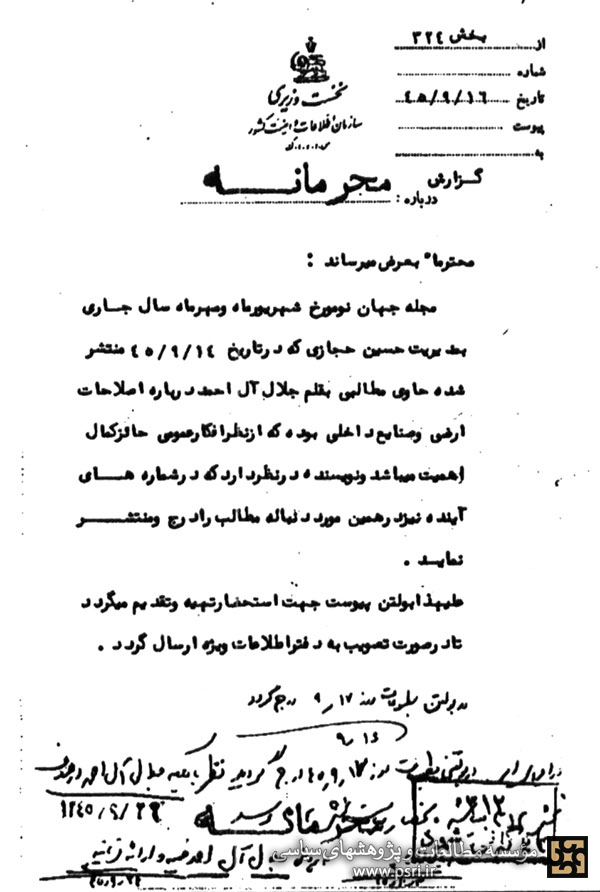 از بخش ۳۲٤
شماره
تاریخ ٤٥/۹/۱٦
پیوست
به
نخست وزیری
سازمان اطلاعات و امنیت کشور
س.ا.و.ا.ک
گزارش
درباره :
محرمانه
محترما" بعرض میرساند :
مجله جهان نو مورخ شهریورماه ومهرماه سال جاری
بمدیریت حسین حجازی که در تاریخ ٤٥/۹/۱٤ منتشر
شده حاوی مطالبی بقلم جلال آل احمد درباره اصلاحات
ارضی وصنایع داخلی بوده که از نظر افکار عمومی حائز کمال
اهمیت میباشد ونویسنده در نظر دارد که در شماره های
آینده نیز در همین مورد دنباله مطالب را درج ومنتشر
نماید .
علیهذا بولتن پیوست جهت استحضار تهیه وتقدیم میگردد
تا در صورت تصویب به دفتر اطلاعات ویژه ارسال گردد .
در بولتن مطبوعات روز ۱۷/۹ درج گردد
۹/۱٦
درج گردید نظر باینکه جلال آل احمد
محرمانه
جلال آل احمد
موسسه مطالعات و پژوهشهای سیاسی
www.psri.ir